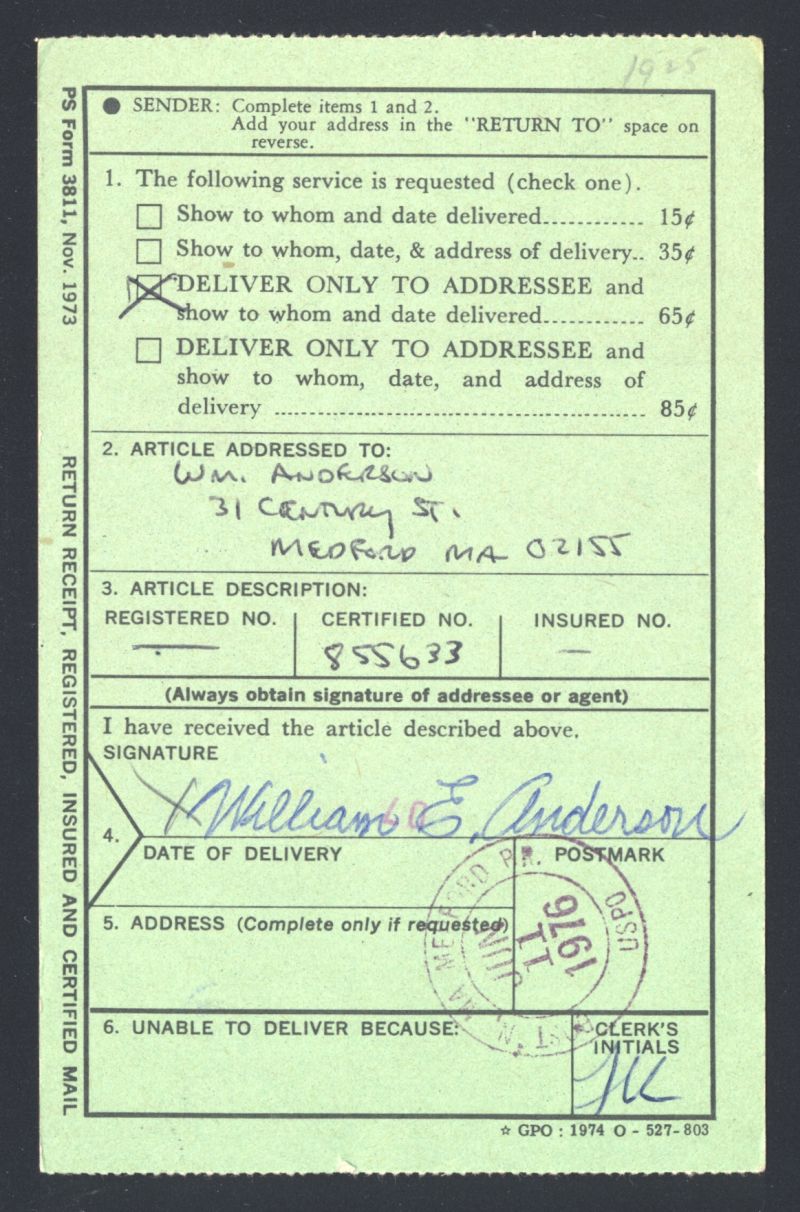 1925
PS Form 3811, Nov. 1973
RETURN RECEIPT, REGISTERED, INSURED AND CERTIFIED MAIL
● SENDER: Complete items 1 and 2.
Add your address in the "RETURN TO" space on
reverse.
1. The following service is requested (check one).
Show to whom and date delivered............ 15¢
Show to whom, date, & address of delivery.. 35¢
DELIVER ONLY TO ADDRESSEE and
show to whom and date delivered............ 65¢
DELIVER ONLY TO ADDRESSEE and
show to whom, date, and address of
delivery ............................................. 85¢
2. ARTICLE ADDRESSED TO:
WM. ANDERSON
31 CENTURY ST.
MEDFORD MA 02155
3. ARTICLE DESCRIPTION:
REGISTERED NO. CERTIFIED NO. INSURED NO.
— 855633 —
(Always obtain signature of addressee or agent)
I have received the article described above.
SIGNATURE
X William E. Anderson
4.
DATE OF DELIVERY POSTMARK
MEDFORD BR.
USPO
JUN
11
1976
BOSTON, MA
5. ADDRESS (Complete only if requested)
6. UNABLE TO DELIVER BECAUSE: CLERK'S
INITIALS
☆ GPO : 1974 O - 527-803